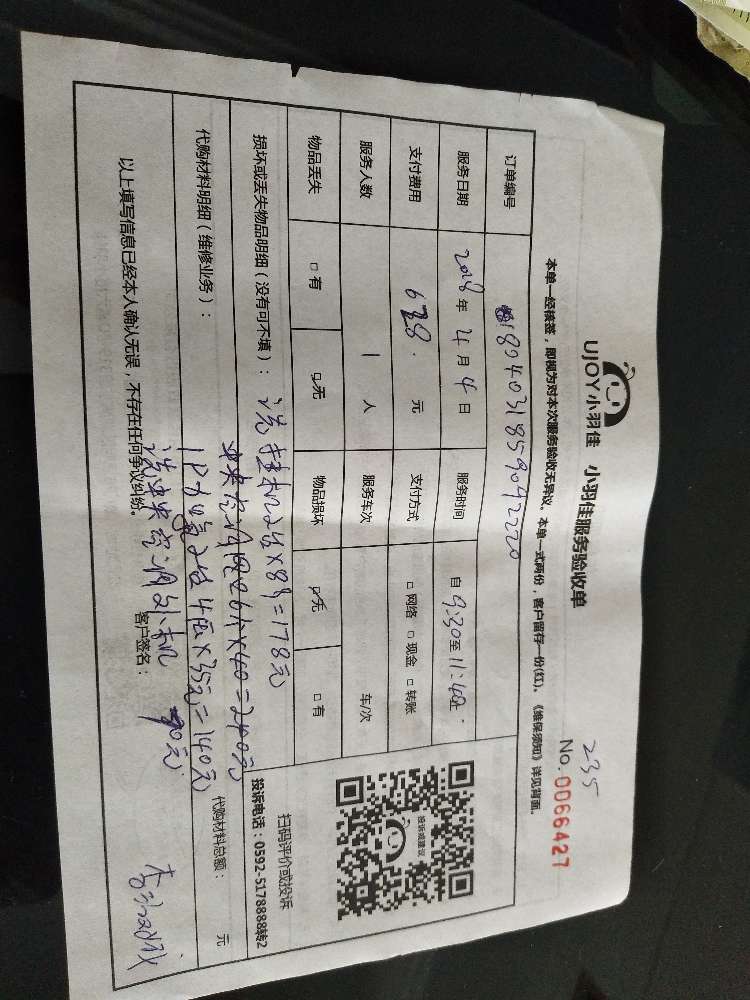 UJOY小羽佳 小羽佳服务验收单
235
No.0066427
本单一经核签，即视为对本次服务验收无异议。本单一式两份，客户留存一份(红)。《维保须知》详见背面。
订单编号 1804031859092220
服务日期 2018年4月4日 服务时间 自9:30至11:40止
支付费用 628.元 支付方式 □网络 □现金 □转账
服务人数 1人 服务车次 车/次
物品丢失 □有 □无 物品损坏 □无 □有
损坏或丢失物品明细（没有可不填）： 洗挂机2台×89=178元
×40=240元
代购材料明细（维修业务）： ×35元=140元
代购材料总额： 元
洗中央空调外机 70元
以上填写信息已经本人确认无误，不存在任何争议纠纷。 客户签名：
投诉或建议
扫码评价或投诉
投诉电话：0592-5178888转2